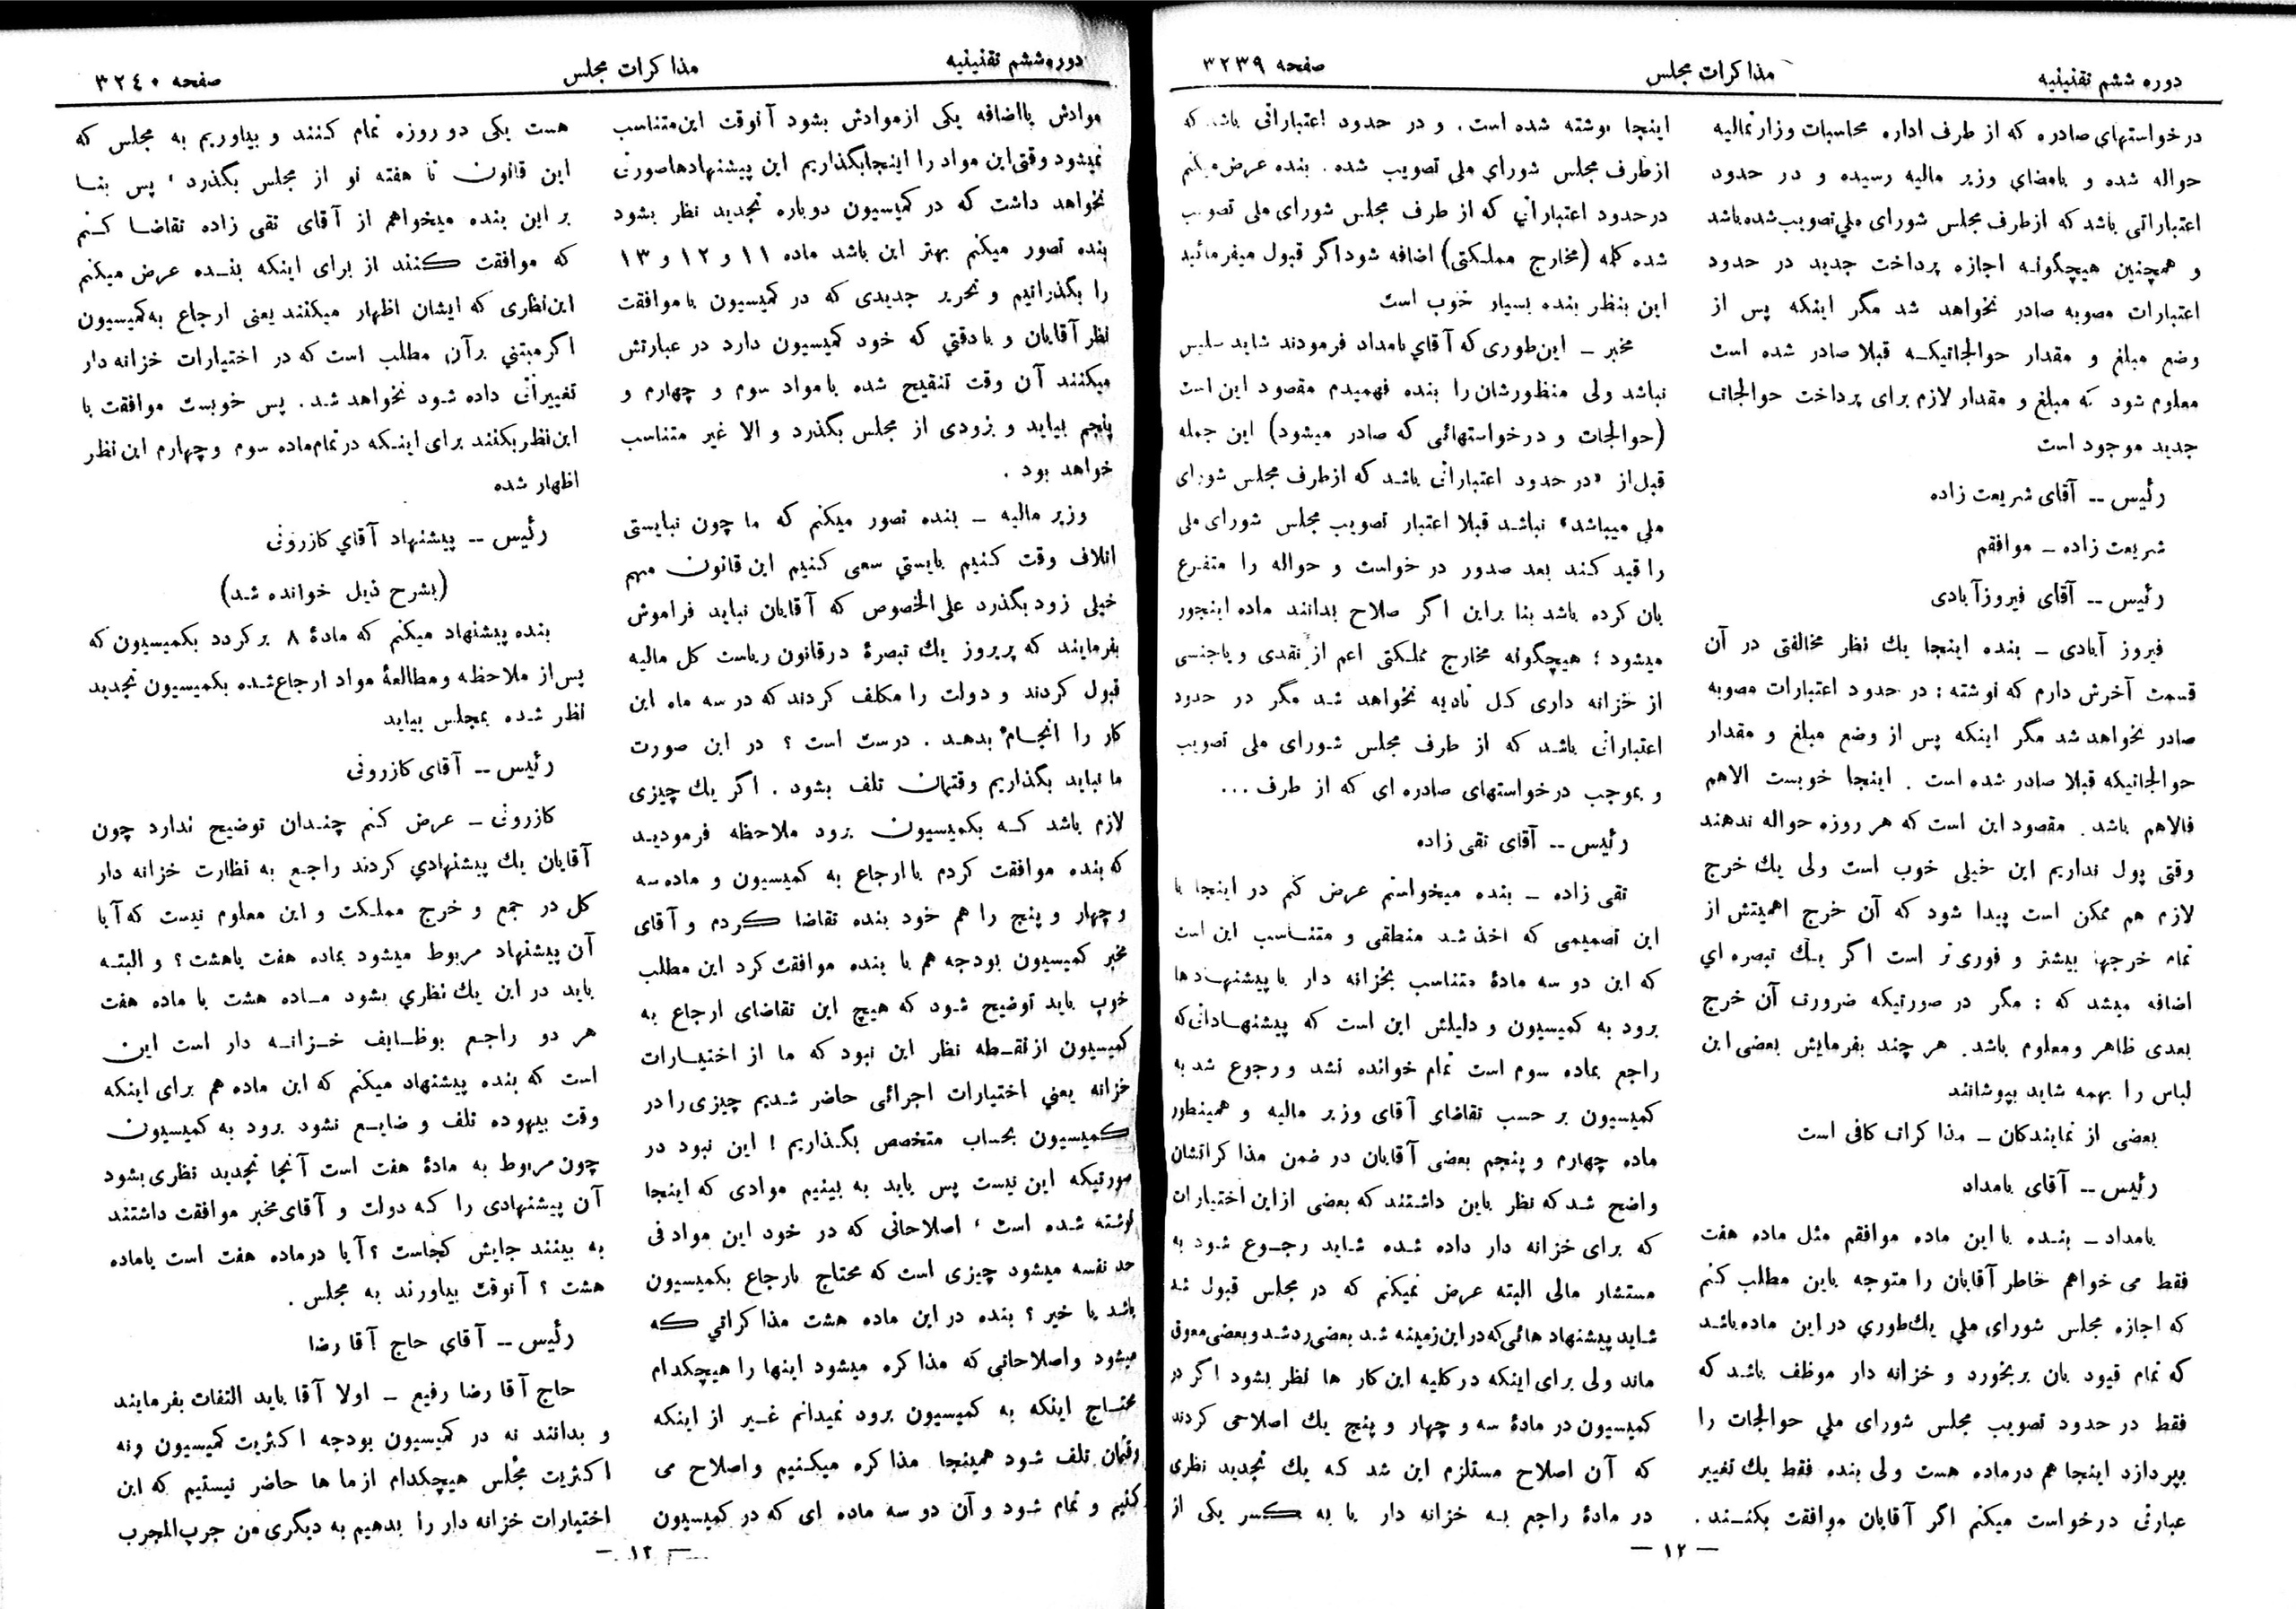 دوره ششم تقنینیه
مذاکرات مجلس
صفحه ۳۲۳۹
درخواستهای صادره که از طرف اداره محاسبات وزارتمالیه
حواله شده و بامضای وزیر مالیه رسیده و در حدود
اعتباراتی باشد که ازطرف مجلس شورای ملي تصویب شده باشد
و همچنین هیچگونه اجازه پرداخت جدید در حدود
اعتبارات مصوبه صادر نخواهد شد مگر اینکه پس از
وضع مبلغ و مقدار حوالجاتیکه قبلا صادر شده است
معلوم شود که مبلغ و مقدار لازم برای پرداخت حوالجات
جدید موجود است
رئیس -- آقای شریعت زاده
شریعت زاده - موافقم
رئیس -- آقای فیروزآبادی
فیروز آبادی - بنده اینجا یك نظر مخالفتی در آن
قسمت آخرش دارم که نوشته : در حدود اعتبارات مصوبه
صادر نخواهد شد مگر اینکه پس از وضع مبلغ و مقدار
حوالجاتیکه قبلا صادر شده است . اینجا خوبست الاهم
فالاهم باشد . مقصود این است که هر روزه حواله ندهند
وقتی پول نداریم این خیلی خوب است ولی یك خرج
لازم هم ممکن است پیدا شود که آن خرج اهمیتش از
تمام خرجها بیشتر و فوری تر است اگر یك تبصره اي
اضافه میشد که : مگر در صورتیکه ضرورت آن خرج
بعدی ظاهر ومعلوم باشد. هر چند بفرمایش بعضی این
لباس را بهمه شاید بپوشانند
بعضی از نمایندگان - مذاکرات کافی است
رئیس -- آقای بامداد
بامداد - بنده با این ماده موافقم مثل ماده هفت
فقط می خواهم خاطر آقایان را متوجه باین مطلب کنم
که اجازه مجلس شورای ملي یك طوري در این ماده باشد
که تمام قیود بان بربخورد و خزانه دار موظف باشد که
فقط در حدود تصویب مجلس شورای ملي حوالجات را
بپردازد اینجا هم درماده هست ولی بنده فقط یك تغییر
عبارتی درخواست میکنم اگر آقایان موافقت بکنند .
اینجا نوشته شده است . و در حدود اعتباراتی باشد که
ازطرف مجلس شورای ملی تصویب شده . بنده عرض میکنم
درحدود اعتباراتي که از طرف مجلس شورای ملی تصویب
شده کلمه (مخارج مملکتی) اضافه شود اگر قبول میفرمائید
این بنظر بنده بسیار خوب است
مخبر - این طوری که آقاي بامداد فرمودند شاید سلیس
نباشد ولی منظورشان را بنده فهمیدم مقصود این است
(حوالجات و درخواستهائی که صادر میشود) این جمله
قبل از «در حدود اعتباراتی باشد که ازطرف مجلس شورای
ملی میباشد» نباشد قبلا اعتبار تصویب مجلس شورای ملی
را قید کند بعد صدور درخواست و حواله را متفرع
بان کرده باشد بنا براین اگر صلاح بدانند ماده اینجور
میشود ؛ هیچگونه مخارج مملکتی اعم از نقدی و یاجنسی
از خزانه داری کل تادیه نخواهد شد مگر در حدود
اعتباراتی باشد که از طرف مجلس شورای ملی تصویب
و بموجب درخواستهای صادره ای که از طرف ...
رئیس -- آقای تقی زاده
تقی زاده - بنده میخواستم عرض کنم در اینجا با
این تصمیمی که اخذ شد منطقی و متناسب این است
که این دو سه مادۀ متناسب بخزانه دار با پیشنهادها
برود به کمیسیون و دلیلش این است که پیشنهاداتی که
راجع بماده سوم است تمام خوانده نشد و رجوع شد به
کمیسیون بر حسب تقاضای آقای وزیر مالیه و همینطور
ماده چهارم و پنجم بعضی آقایان در ضمن مذاکراتشان
واضح شد که نظر باین داشتند که بعضی ازاین اختیارات
که برای خزانه دار داده شده شاید رجوع شود به
مستشار مالی البته عرض نمیکنم که در مجلس قبول شد
شاید پیشنهاد هائی که در این زمینه شد بعضی رد شد و بعضی معوق
ماند ولی برای اینکه در کلیه این کار ها نظر بشود اگر در
کمیسیون در مادۀ سه و چهار و پنج یك اصلاحی کردند
که آن اصلاح مستلزم این شد که یك تجدید نظری
در مادۀ راجع به خزانه دار یا به کسر یکی از
— ۱۲ —
دوره ششم تقنینیه
مذاکرات مجلس
صفحه ۳۲٤۰
موادش یااضافه یکی ازموادش بشود آنوقت این متناسب
نمیشود وقتی این مواد را اینجا بگذاریم این پیشنهادها صورتی
نخواهد داشت که در کمیسیون دوباره تجدید نظر بشود
بنده تصور میکنم بهتر این باشد ماده ۱۱ و ۱۲ و ۱۳
را بگذرانیم و تحریر جدیدی که در کمیسیون با موافقت
نظر آقایان و بادقتي که خود کمیسیون دارد در عبارتش
میکنند آن وقت تنقیح شده بامواد سوم و چهارم و
پنجم بیاید و بزودی از مجلس بگذرد و الا غیر متناسب
خواهد بود .
وزیر مالیه - بنده تصور میکنم که ما چون نبایستی
اتلاف وقت کنیم بایستي سعی کنیم این قانون مهم
خیلی زود بگذرد علی الخصوص که آقایان نباید فراموش
بفرمایند که پریروز یك تبصرۀ درقانون ریاست کل مالیه
قبول کردند و دولت را مکلف کردند که در سه ماه این
کار را انجام بدهد . درست است ؟ در این صورت
ما نباید بگذاریم وقتمان تلف بشود . اگر یك چیزی
لازم باشد که بکمیسیون برود ملاحظه فرمودید
که بنده موافقت کردم با ارجاع به کمیسیون و ماده سه
و چهار و پنج را هم خود بنده تقاضا کردم و آقای
مخبر کمیسیون بودجه هم با بنده موافقت کرد این مطلب
خوب باید توضیح شود که هیچ این تقاضای ارجاع به
کمیسیون از نقطه نظر این نبود که ما از اختیارات
خزانه یعني اختیارات اجرائی حاضر شدیم چیزی را در
کمیسیون بحساب متخصص بگذاریم ! این نبود در
صورتیکه این نیست پس باید به بینیم موادی که اینجا
نوشته شده است ، اصلاحاتی که در خود این مواد فی
حد نفسه میشود چیزی است که محتاج بارجاع بکمیسیون
باشد یا خیر ؟ بنده در این ماده هشت مذاکراتي که
میشود و اصلاحاتی که مذاکره میشود اینها را هیچکدام
محتاج اینکه به کمیسیون برود نمیدانم غیر از اینکه
وقتمان تلف شود همینجا مذاکره میکنیم و اصلاح می
کنیم و تمام شود و آن دو سه ماده ای که در کمیسیون
هست یکی دو روزه تمام کنند و بیاوریم به مجلس که
این قانون تا هفته نو از مجلس بگذرد ، پس بنا
بر این بنده میخواهم از آقای تقی زاده تقاضا کنم
که موافقت کنند از برای اینکه بنده عرض میکنم
این نظری که ایشان اظهار میکنند یعنی ارجاع به کمیسیون
اگر مبتني بر آن مطلب است که در اختیارات خزانه دار
تغییراتی داده شود نخواهد شد . پس خوبست موافقت با
این نظر بکنند برای اینکه در تمام ماده سوم و چهارم این نظر
اظهار شده
رئیس -- پیشنهاد آقاي کازرونی
(بشرح ذیل خوانده شد)
بنده پیشنهاد میکنم که مادۀ ۸ برگردد بکمیسیون که
پس از ملاحظه و مطالعۀ مواد ارجاع شده بکمیسیون تجدید
نظر شده بمجلس بیاید
رئیس -- آقای کازرونی
کازرونی - عرض کنم چندان توضیح ندارد چون
آقایان یك پیشنهادي کردند راجع به نظارت خزانه دار
کل در جمع و خرج مملکت و این معلوم نیست که آیا
آن پیشنهاد مربوط میشود بماده هفت یاهشت ؟ و البته
باید در این یك نظري بشود ماده هشت با ماده هفت
هر دو راجع بوظایف خزانه دار است این
است که بنده پیشنهاد میکنم که این ماده هم برای اینکه
وقت بیهوده تلف و ضایع نشود برود به کمیسیون
چون مربوط به مادۀ هفت است آنجا تجدید نظری بشود
آن پیشنهادی را که دولت و آقای مخبر موافقت داشتند
به بینند جایش کجاست ؟ آیا درماده هفت است یاماده
هشت ؟ آنوقت بیاورند به مجلس .
رئیس -- آقاي حاج آقا رضا
حاج آقا رضا رفیع - اولا آقا باید التفات بفرمایند
و بدانند نه در کمیسیون بودجه اکثریت کمیسیون و نه
اکثریت مجلس هیچکدام از ما ها حاضر نیستیم که این
اختیارات خزانه دار را بدهیم به دیگری من جرب المجرب
— ۱۳ —